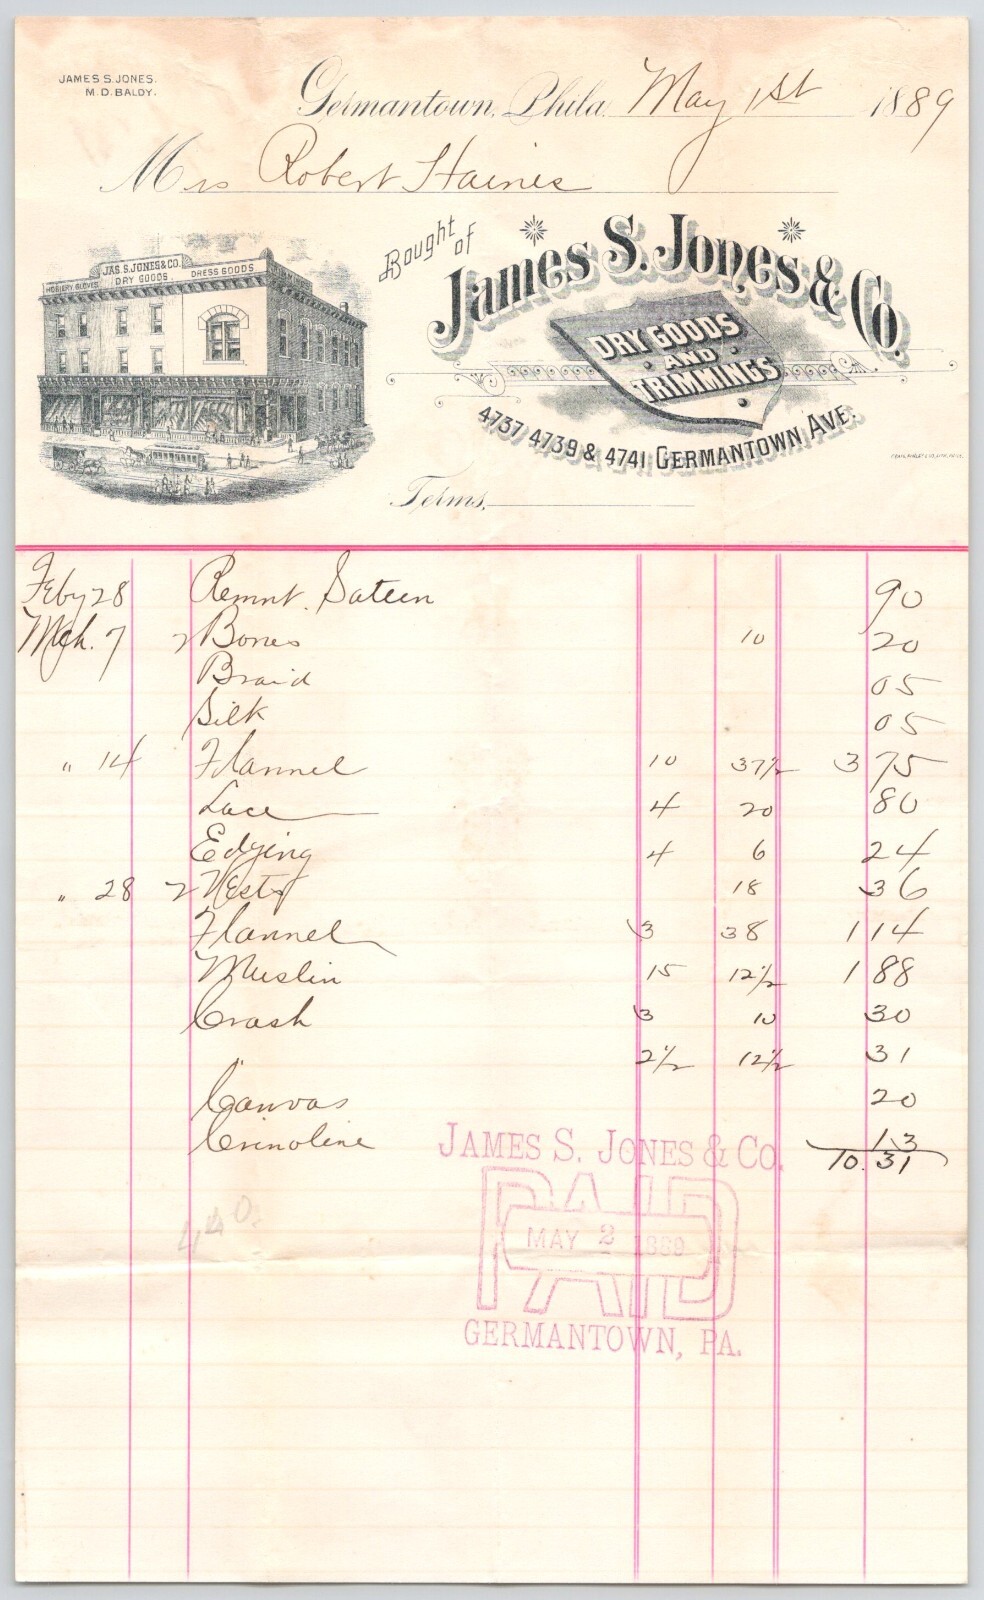 JAMES S. JONES.
M. D. BALDY.
Germantown, Phila. May 1st 1889
Mrs Robert Haines
Bought of
James S. Jones & Co.
JAS. S. JONES & CO.
DRY GOODS
HOSIERY, GLOVES
DRESS GOODS
DRY GOODS
AND
TRIMMINGS
4737 4739 & 4741 GERMANTOWN AVE.
Terms,
Feby 28 Remnt. Sateen 90
Mch. 7 2 Bones 10 20
Braid 05
Silk 05
" 14 Flannel 10 37½ 3 75
Lace 4 20 80
Edging 4 6 24
" 28 2 Vests 18 36
Flannel 3 38 1 14
Muslin 15 12½ 1 88
Crash 3 10 30
" 2½ 12½ 31
Canvas 20
Crinoline 13
10.31
JAMES S. JONES & CO.
PAID
MAY 2 1889
GERMANTOWN, PA.
440